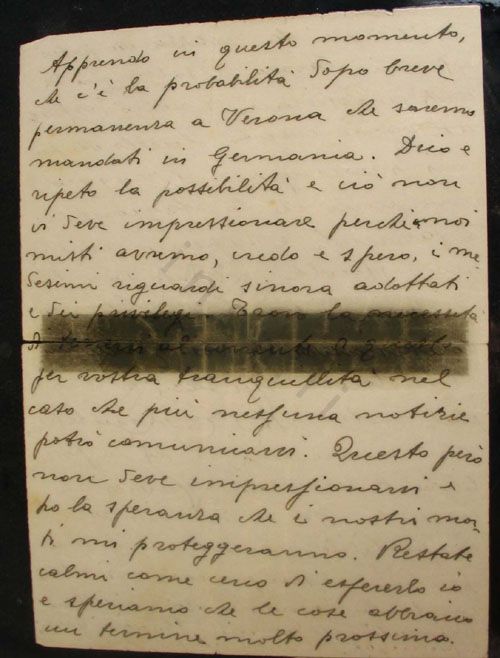 Apprendo in questo momento,
che c'è la probabilità dopo breve
permanenza a Verona che saremo
mandati in Germania. Dico e
ripeto la possibilità e ciò non
vi deve impressionare perché noi
misti avremo, credo e spero, i me
desimi riguardi sinora adottati
e dei privilegi. Trovo la necessità
di tenervi al corrente di quello
per vostra tranquillità nel
caso che più nessuna notizie
potrò comunicarvi. Questo però
non deve impressionarvi e
ho la speranza che i nostri mor
ti mi proteggeranno. Restate
calmi come cerco di esserlo io
e speriamo che le cose abbiano
un termine molto prossimo.